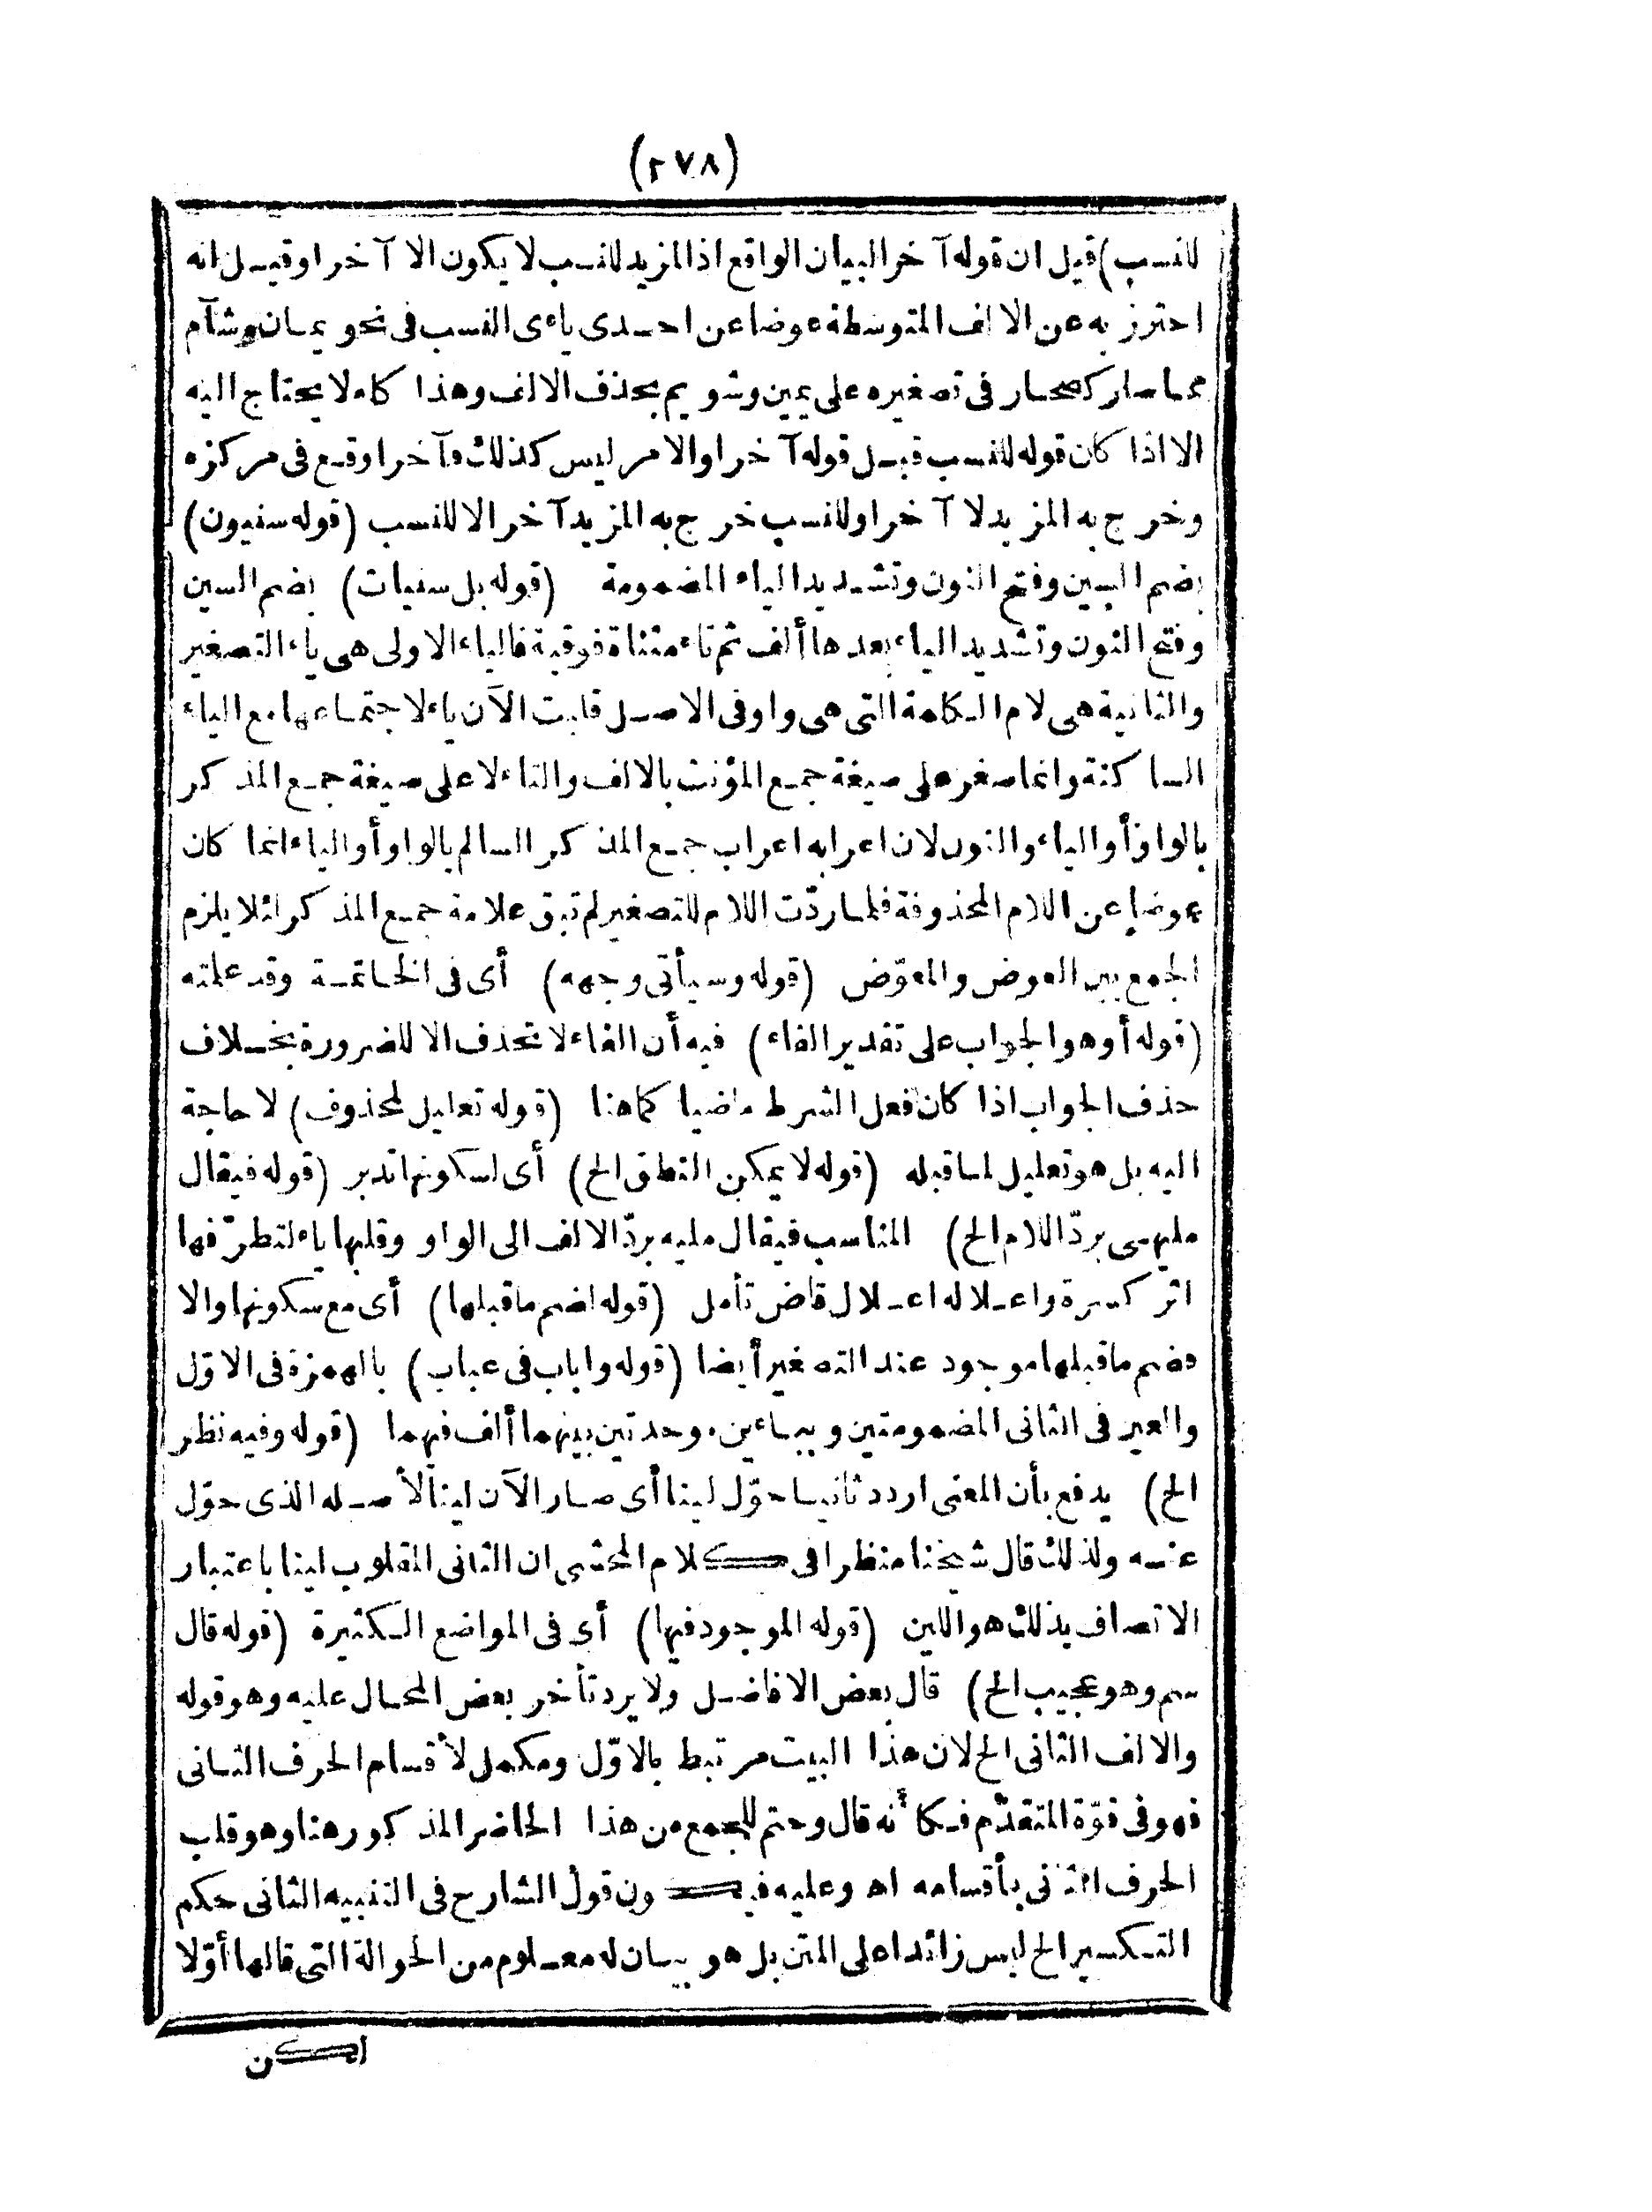 (٢٧٨)
للنسب) قيل ان قوله آخر البيان الواقع اذ المزيد للنسب لا يكون الا آخرا وقيل انه
احترز به عن الالف المتوسطة عوضا عن احدى ياءى النسب فى نحو يمان وشآم
مما صار كصحار فى تصغيره على يمين وشويم بحذف الالف وهذا كله لا يحتاج اليه
الا اذا كان قوله للنسب قبل قوله آخرا والامر ليس كذلك فآخرا وقع فى مركزه
وخرج به المزيد لا آخرا وللنسب خرج به المزيد آخر الا للنسب (قوله سنيون)
بضم السين وفتح النون وتشديد الياء المضمومة (قوله بل سنيات) بضم السين
وفتح النون وتشديد الياء بعدها ألف ثم تاء مثناة فوقية فالياء الاولى هى ياء التصغير
والثانية هى لام الكلمة التى هى واو فى الاصل قلبت الآن ياء لاجتماعها مع الياء
الساكنة وانما صغر على صيغة جمع المؤنث بالالف والتاء لا على صيغة جمع المذكر
بالواو أو الياء والنون لان اعرابه اعراب جمع المذكر السالم بالواو أو الياء انما كان
عوضا عن اللام المحذوفة فلما ردّت اللام للتصغير لم تبق علامة جمع المذكر لئلا يلزم
الجمع بين العوض والمعوّض (قوله وسيأتى وجهه) أى فى الخاتمة وقد علمته
(قوله أو هو الجواب على تقدير الفاء) فيه أن الفاء لا تحذف الا للضرورة بخلاف
حذف الجواب اذا كان فعل الشرط ماضيا كما هنا (قوله تعليل لمحذوف) لا حاجة
اليه بل هو تعليل لما قبله (قوله لا يمكن النطق الخ) أى لسكونها تدبر (قوله فيقال
مليهى بردّ اللام الخ) المناسب فيقال مليه بردّ الالف الى الواو وقلبها ياء لتطرّفها
اثر كسرة واعلاله اعلال قاض تأمل (قوله اضم ما قبلها) أى مع سكونها والا
فضم ما قبلها موجود عند التصغير أيضا (قوله واباب فى عباب) بالهمزة فى الاوّل
والعين فى الثانى المضمومتين وبباءين موحدتين بينهما ألف فيهما (قوله وفيه نظر
الخ) يدفع بأن المعنى اردد ثانيا حوّل لينا أى صار الآن لينا لأصله الذى حوّل
عنه ولذلك قال شيخنا منظرا فى كلام المحشى ان الثانى المقلوب لينا باعتبار
الاتصاف بذلك هو اللين (قوله الموجود فيها) أى فى المواضع الكثيرة (قوله قال
سم وهو عجيب الخ) قال بعض الافاضل ولا يرد تأخر بعض المحال عليه وهو قوله
والالف الثانى الخ لان هذا البيت مرتبط بالاوّل ومكمل لأقسام الحرف الثانى
فهو فى قوّة المتقدّم فكأنه قال وحتم للجمع من هذا الحاضر المذكور هنا وهو قلب
الحرف الثانى بأقسامه اه وعليه فيكون قول الشارح فى التنبيه الثانى حكم
التكسير الخ ليس زائدا على المتن بل هو بيان له معلوم من الحوالة التى قالها أوّلا
لكن